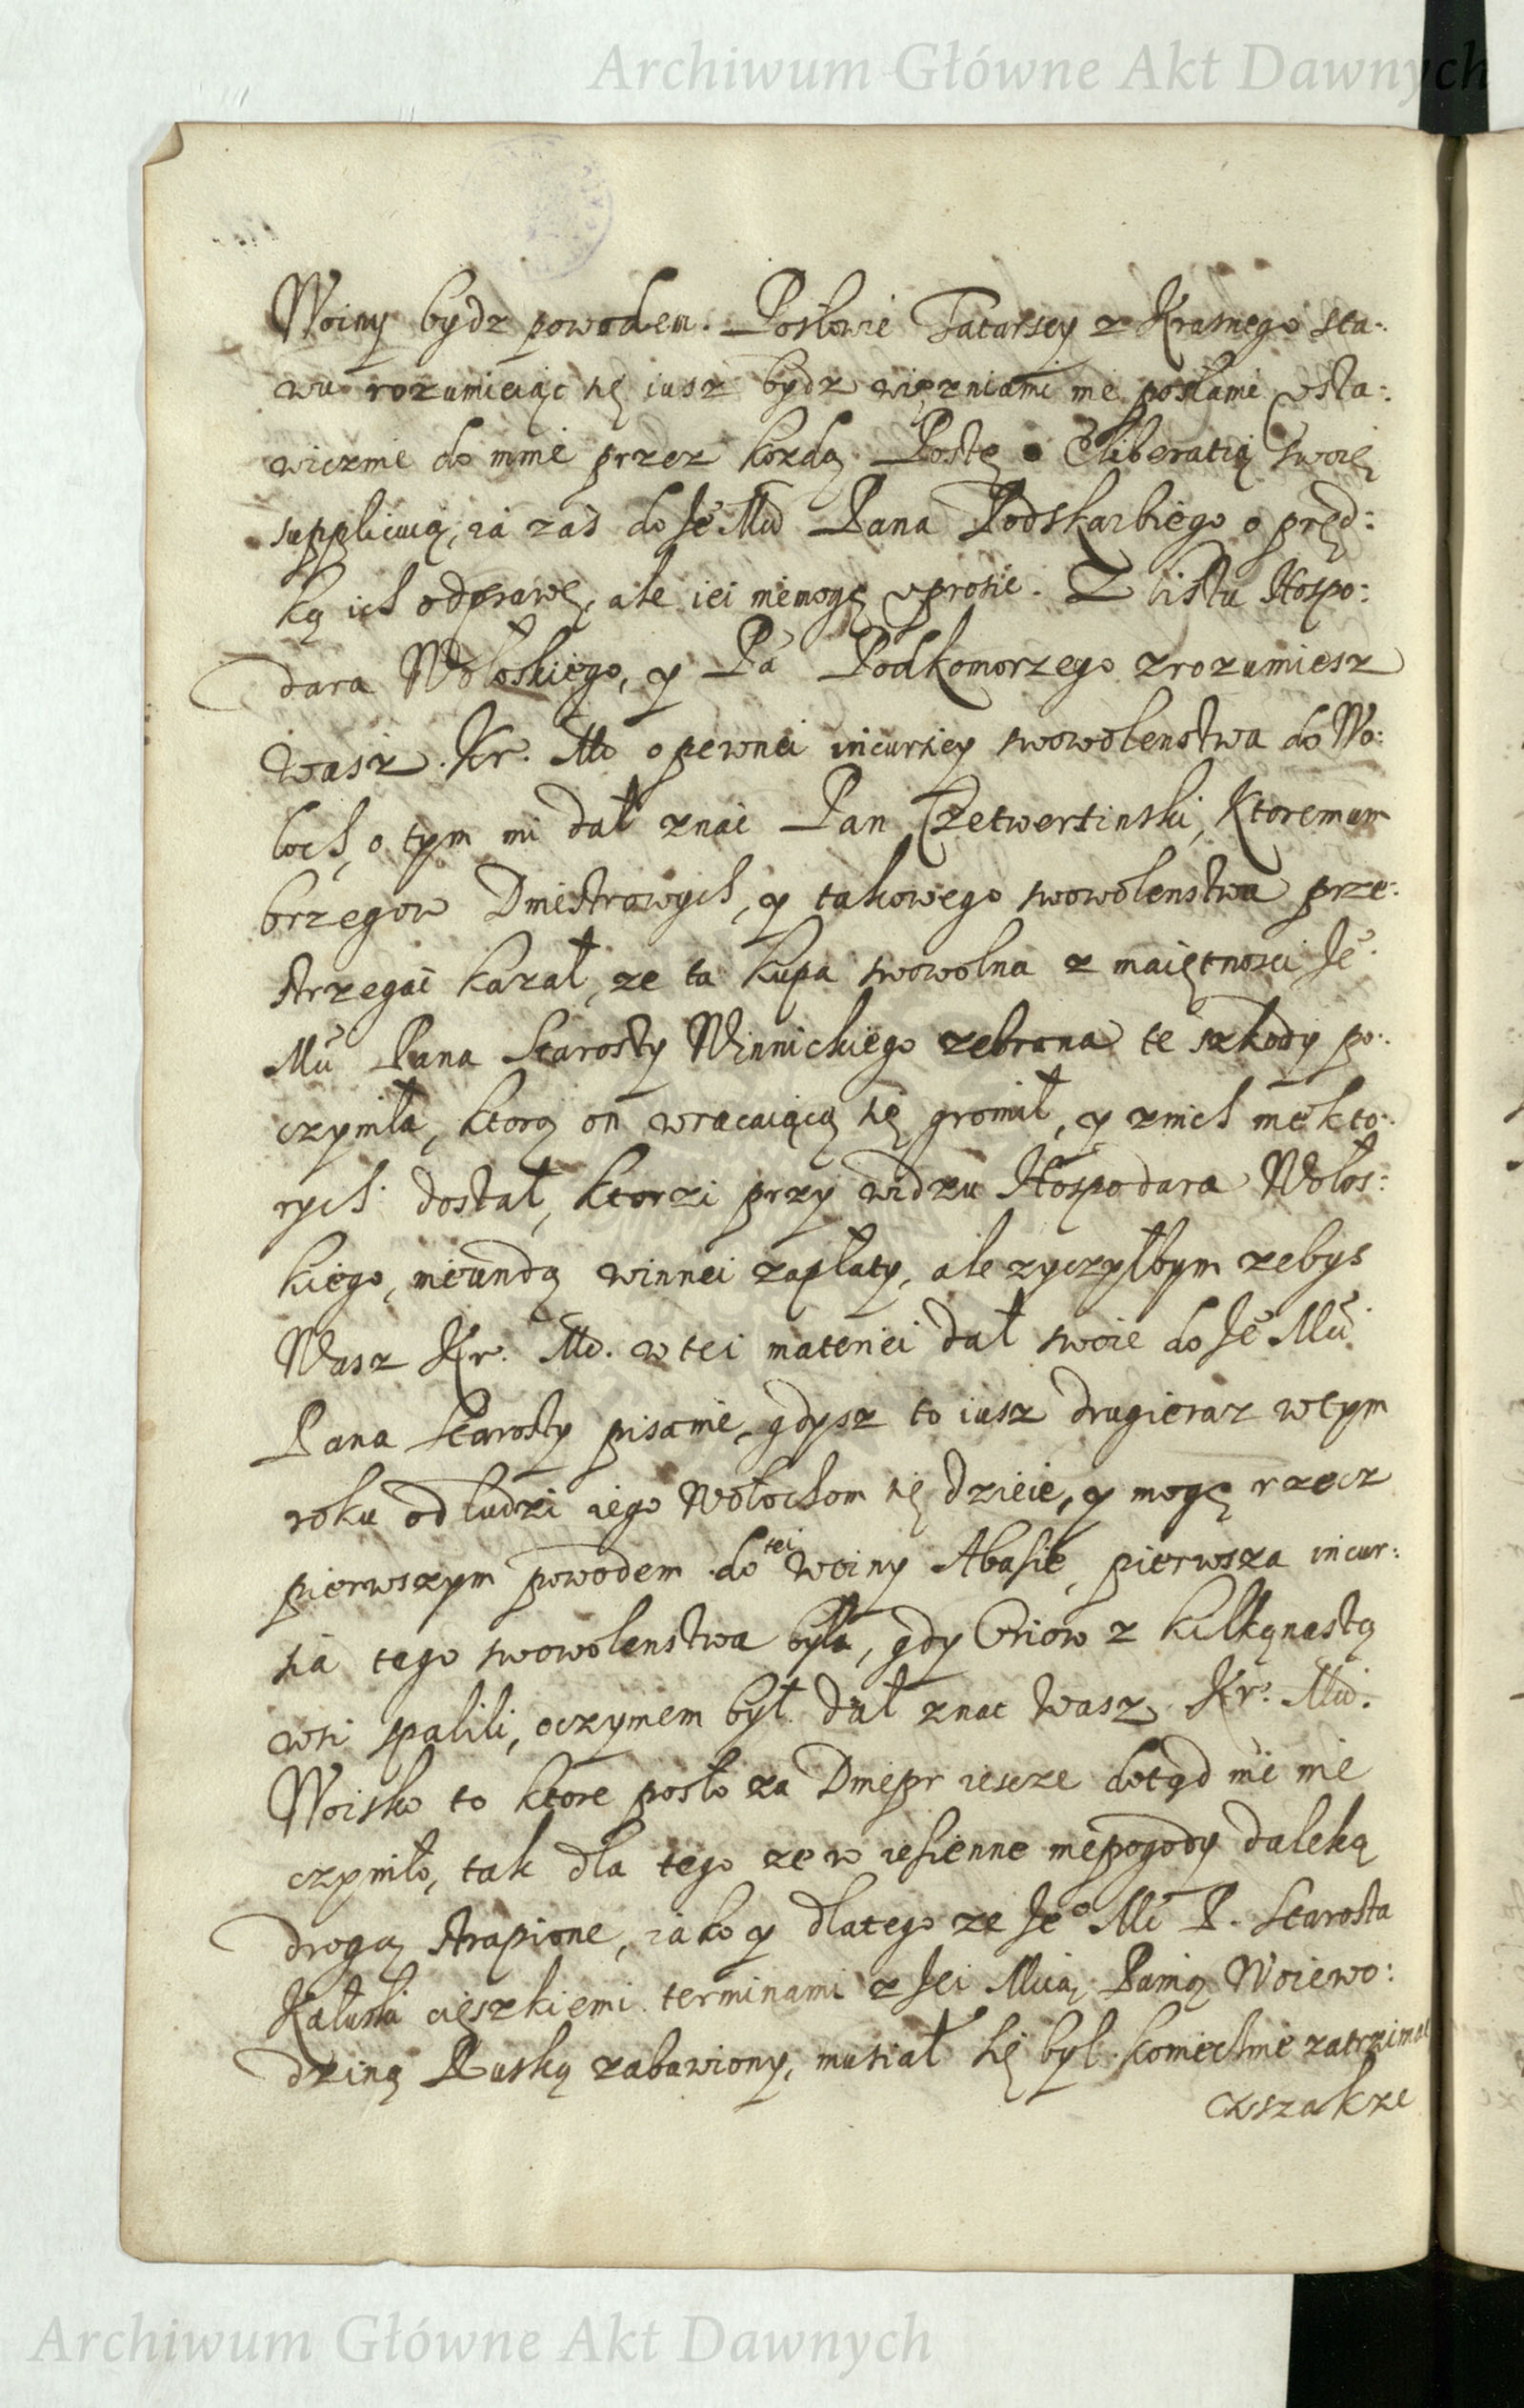 Archiwum Główne Akt Dawnych
Woiny bydz powodem. Posłowie Tatarscy z Krasnego sta:
wu rozumieiąc się iusz bydz więzniami nie posłami vsta:
wicznie do mnie przez kozdą Postę o Eliberatią swoię
supplicuią, ia zas do Je Mci Pana Podskarbiego o pręd:
ką ich odprawę, ale iei niemogę vprosic. Z listu Hospo:
dara Wołoskiego, y Pa Podkomorzego zrozumiesz
Wasz. Kr. Mc o pewnei incursiey swowolenstwa do Wo:
loch, o tym mi dał znac Pan Czetwertinski, Ktoremum
brzegow Dniestrowych, y takowego swowolenstwa prze:
strzegac kazał, ze ta kupa swowolna z maiętnosci Je
Mci Pana Starosty Winnickiego zebrana te szkody po:
czyniła, ktorą on wracaiącą się gromił, y znich niekto:
rych dostał, ktorzi przy widzu Hospodara Wołos:
kiego, nieundą winnei zapłaty, ale zyczyłbym zebys
Wasz Kr. Mc. w tei materiei dał swoie do Je Mci
Pana Starosty pisanie, gdysz to iusz drugi eraz wtym
roku od ludzi iego Wołochom się dzieie, y mogę rzecz
pierwszym powodem do tei woiny Abasie, pierwsza incur:
sia tego swowolenstwa była, gdy Oriow z kilkąnastą
wsi spalili, oczymem był dał znac Wasz. Kr. Mci.
Woisko to ktore posło za Dniepr iescze dotąd nic nie
czyniło, tak dla tego ze w iesienne niepogody daleką
drogą strapione, iako y dlatego ze Jeo Mc P. Starosta
Kałuski cięszkiemi terminami z Jei Mcią Panią Woiewo:
dziną Ruską zabawiony, musiał się był koniechnie zatrzimac
wszakze
Archiwum Główne Akt Dawnych